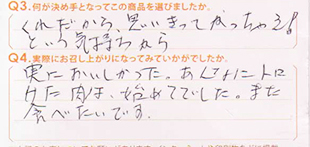 Q3.何が決め手となってこの商品を選びましたか。
くれだから、思いきってかっちゃえ!
という気持ちから
Q4.実際にお召し上がりになってみていかがでしたか。
実においしかった。あんなにトロ
けた肉は、始めてでした。また
食べたいです。